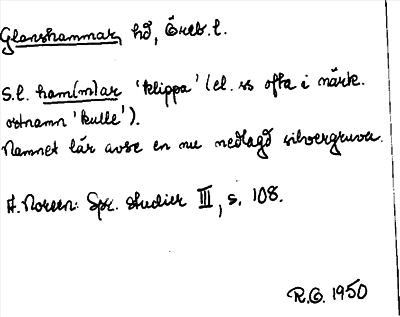 Glanshammar, hd, Öreb. l.
S.l. ham(m)ar 'klippa' (el. ss ofta i närk.
ortnamn 'kulle').
Namnet lär avse en nu nedlagd silvergruva.
A. Noreen: Spr. studier III, s. 108.
R.G. 1950